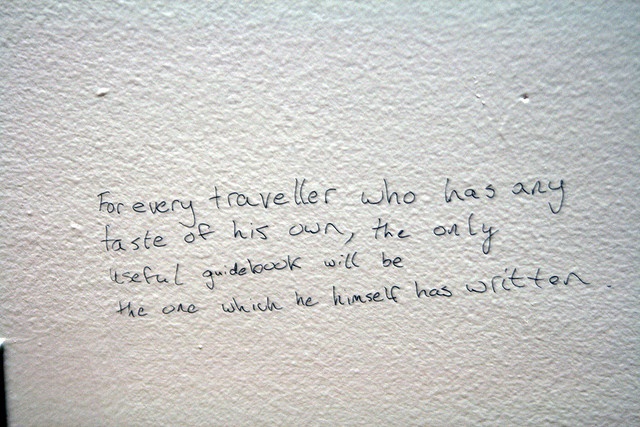 For every traveller who has any
taste of his own, the only
useful guidebook will be
the one which he himself has written.